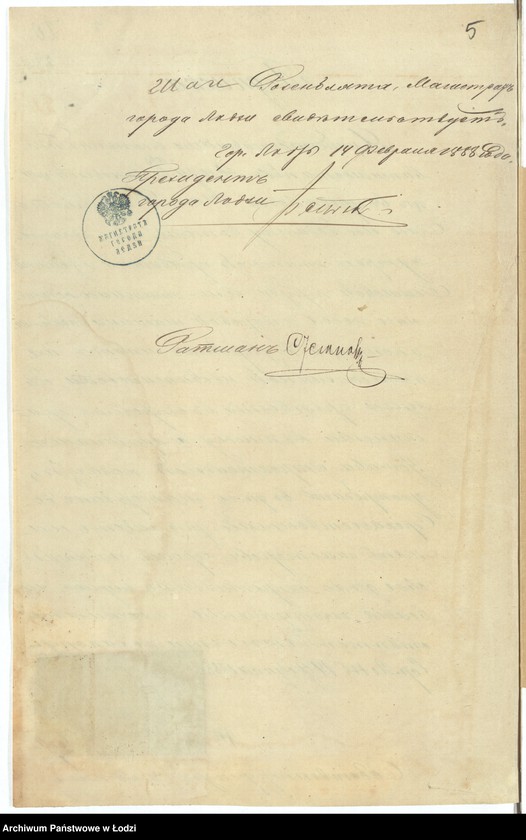 5
Шаи Розенблята, Магистратъ
города Лодзи свидѣтельствуетъ.
Гор. Лодзь 14 Февраля 1888 года.
Президентъ
города Лодзи
МАГИСТРАТЪ
ГОРОДА
ЛОДЗИ
Ратманъ
Archiwum Państwowe w Łodzi